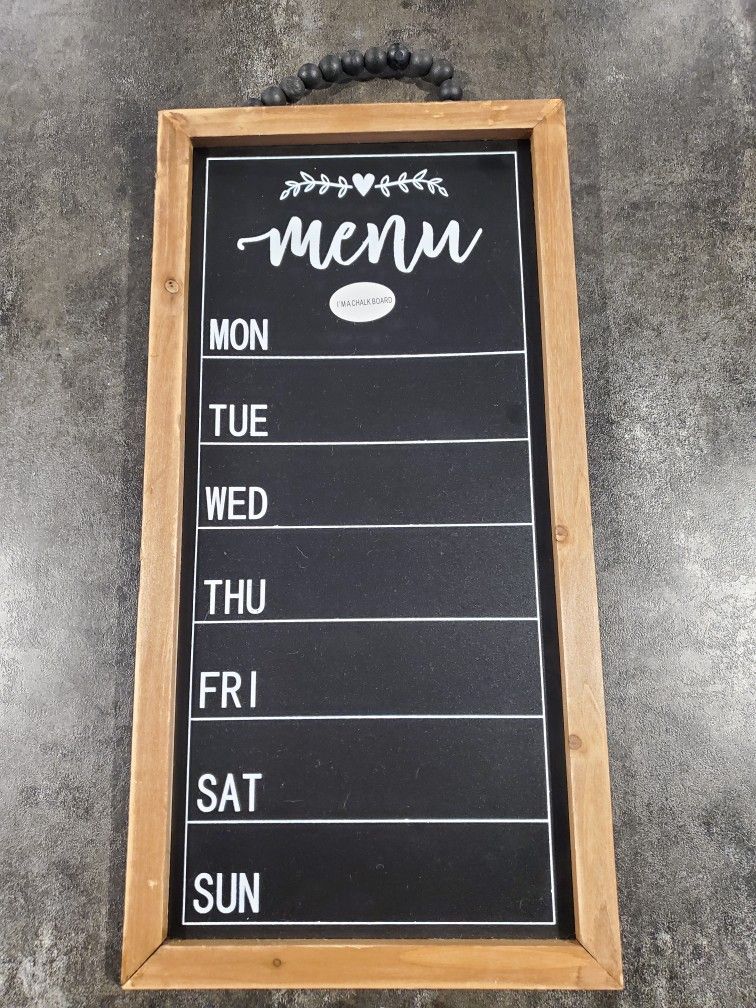 menu
I'M A CHALK BOARD
MON
TUE
WED
THU
FRI
SAT
SUN